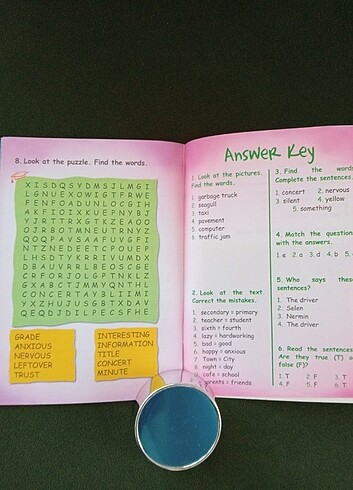 8. Look at the puzzle. Find the words.
X I S D Q S Y D M S J L M G I
L G N U E X O W I G T F R W E
F E N F O A D U N L O C G I H
A K F I O I X K U E P N Y B J
Y J R T T R X G T K Z E A O O
J R B O T M N E U T R N Y Z
Q O Q P A V S A A F U V G F I
N T Z N E D E E T C P O U E P
L H S D T Y K R R I V U M D X
D B A U V R R L B E O S C G E
C R F O R J O L G P T N K L Z
G X A B C T J M M Y Q N T H L
C O N C E R T A Y B L I I M I
Y X Z H U J U S G B T X D A V
Q E Q D J D I L P E C S F H E
GRADE
ANXIOUS
NERVOUS
LEFTOVER
TRUST
INTERESTING
INFORMATION
TITLE
CONCERT
MINUTE
Answer Key
1. Look at the pictures.
Find the words.
1. garbage truck
2. seagull
3. taxi
4. pavement
5. computer
6. traffic jam
2. Look at the text.
Correct the mistakes.
1. secondary = primary
2. teacher = student
3. sixth = fourth
4. lazy = hardworking
5. bad = good
6. happy = anxious
7. Town = City
8. night = day
9. cafe = school
parents = friends
3. Find the words.
Complete the sentences.
1. concert 2. nervous
3. silent 4. yellow
5. something
4. Match the question
with the answers.
1. e 2. a 3. d 4. b 5.
5. Who says these
sentences?
1. The driver
2. Selen
3. Nermin
4. The driver
6. Read the sentences.
Are they true (T) or
false (F)?
1. T 2. F 3. T
4. F 5. F 6. T